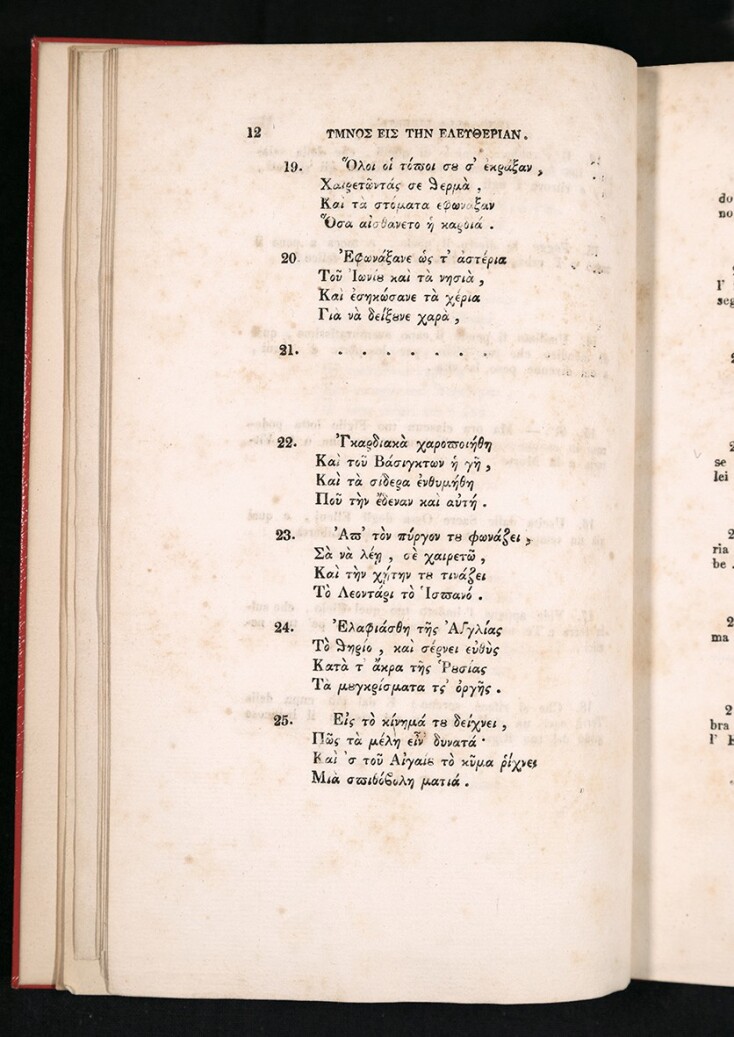 12 ΥΜΝΟΣ ΕΙΣ ΤΗΝ ΕΛΕΥΘΕΡΙΑΝ.
19. Ὅλοι οἱ τόποι σȣ σ' ἐκραξαν,
Χαιρετῶντάς σε θερμὰ,
Καὶ τὰ στόματα εφωναξαν
Ὅσα αἰσθανετο ἡ καρδιά.
20 Ἐφωνάξανε ὡς τ' ἀστέρια
Τοῦ Ἰωνίȣ καὶ τὰ νησιὰ,
Καὶ ἐσηκώσανε τὰ χέρια
Γιὰ νὰ δείξȣνε χαρὰ,
21. . . . . . . .
22. Ἐγκαρδιακὰ χαροποιήθη
Καὶ τοῦ Βάσιγκτων ἡ γῆ,
Καὶ τὰ σίδερα ἐνθυμήθη
Ποῦ τὴν ἔδεναν καὶ αὐτή.
23. Ἀπ' τὸν πύργον τȣ φωνάζει,
Σὰ νὰ λέῃ, σὲ χαιρετῶ,
Καὶ τὴν χήτην τȣ τινάζει
Τὸ Λεοντάρι τὸ Ἱσπανό.
24. Ἐλαφιάσθη τῆς Ἀγγλίας
Τὸ θηρίο, καὶ σέρνει εὐθὺς
Κατὰ τ' ἄκρα τῆς Ῥȣσίας
Τὰ μȣγκρίσματα τς' ὀργῆς.
25. Εἰς τὸ κίνημά τȣ δείχνει,
Πῶς τὰ μέλη εἶν' δυνατά·
Καὶ 'σ τοῦ Αἰγαίȣ τὸ κῦμα ῥίχνει
Μιὰ σπιθόβολη ματιά.
do
no
l'
seg
2
2
se
lei
2
ria
be.
2
ma
2
bra
l' E